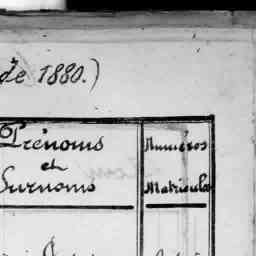 de 1880.)
Prénoms
et
Surnoms
Numéros
Matricules